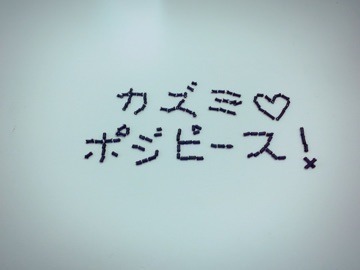 カズミ♡
ポジピース!